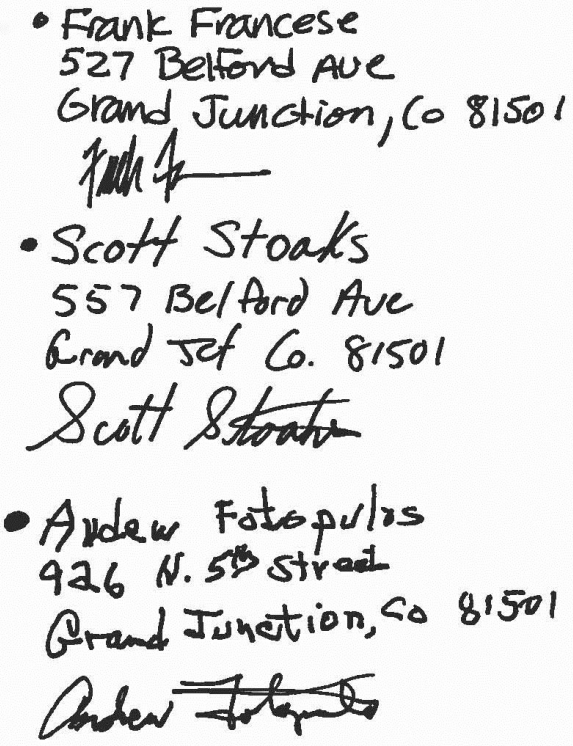 • Frank Francese
527 Belford Ave
Grand Junction, Co 81501
• Scott Stoaks
557 Belford Ave
Grand Jct Co. 81501
Scott Stoaks
• Andew Fotopulos
926 N. 5th Street
Grand Junction, Co 81501
Andrew Fotopulos